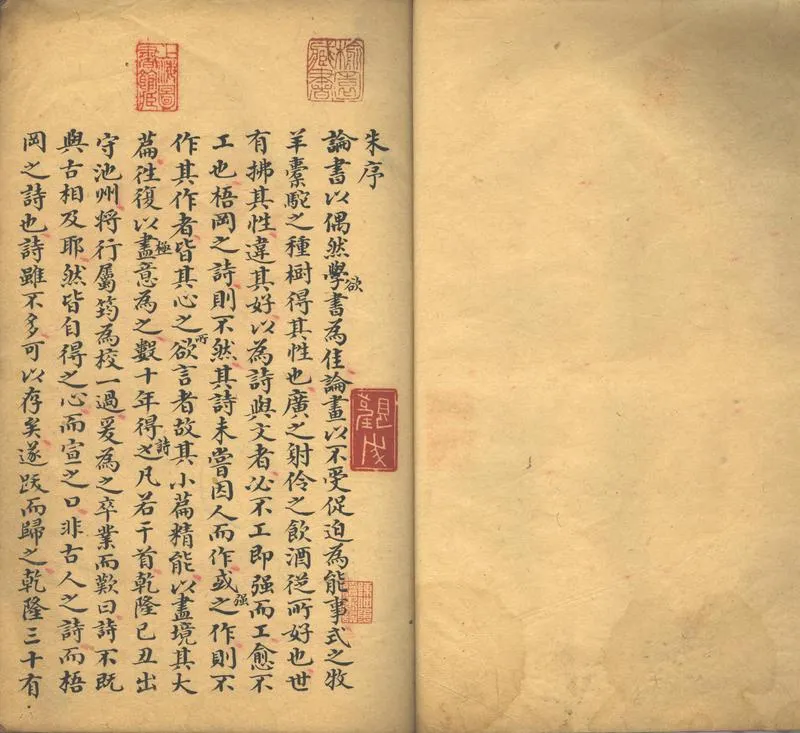 朱序
論書以偶然欲學書為佳論畫以不受促迫為能事式之牧
羊橐駝之種樹得其性也廣之射伶之飲酒從所好也世
有拂其性違其好以為詩與文者必不工即强而工愈不
工也梧岡之詩則不然其詩未嘗因人而作或强之作則不
作其作者皆其心之所欲言者故其小篇精能以盡境其大
篇徃復以極盡意為之數十年得之詩凡若干首乾隆己丑出
守池州將行屬筠為校一過爰為之卒業而歎曰詩不旣
與古相及耶然皆自得之心而宣之口非古人之詩而梧
岡之詩也詩雖不多可以存矣遂跋而歸之乾隆三十有
榆園藏書
上海圖書館藏